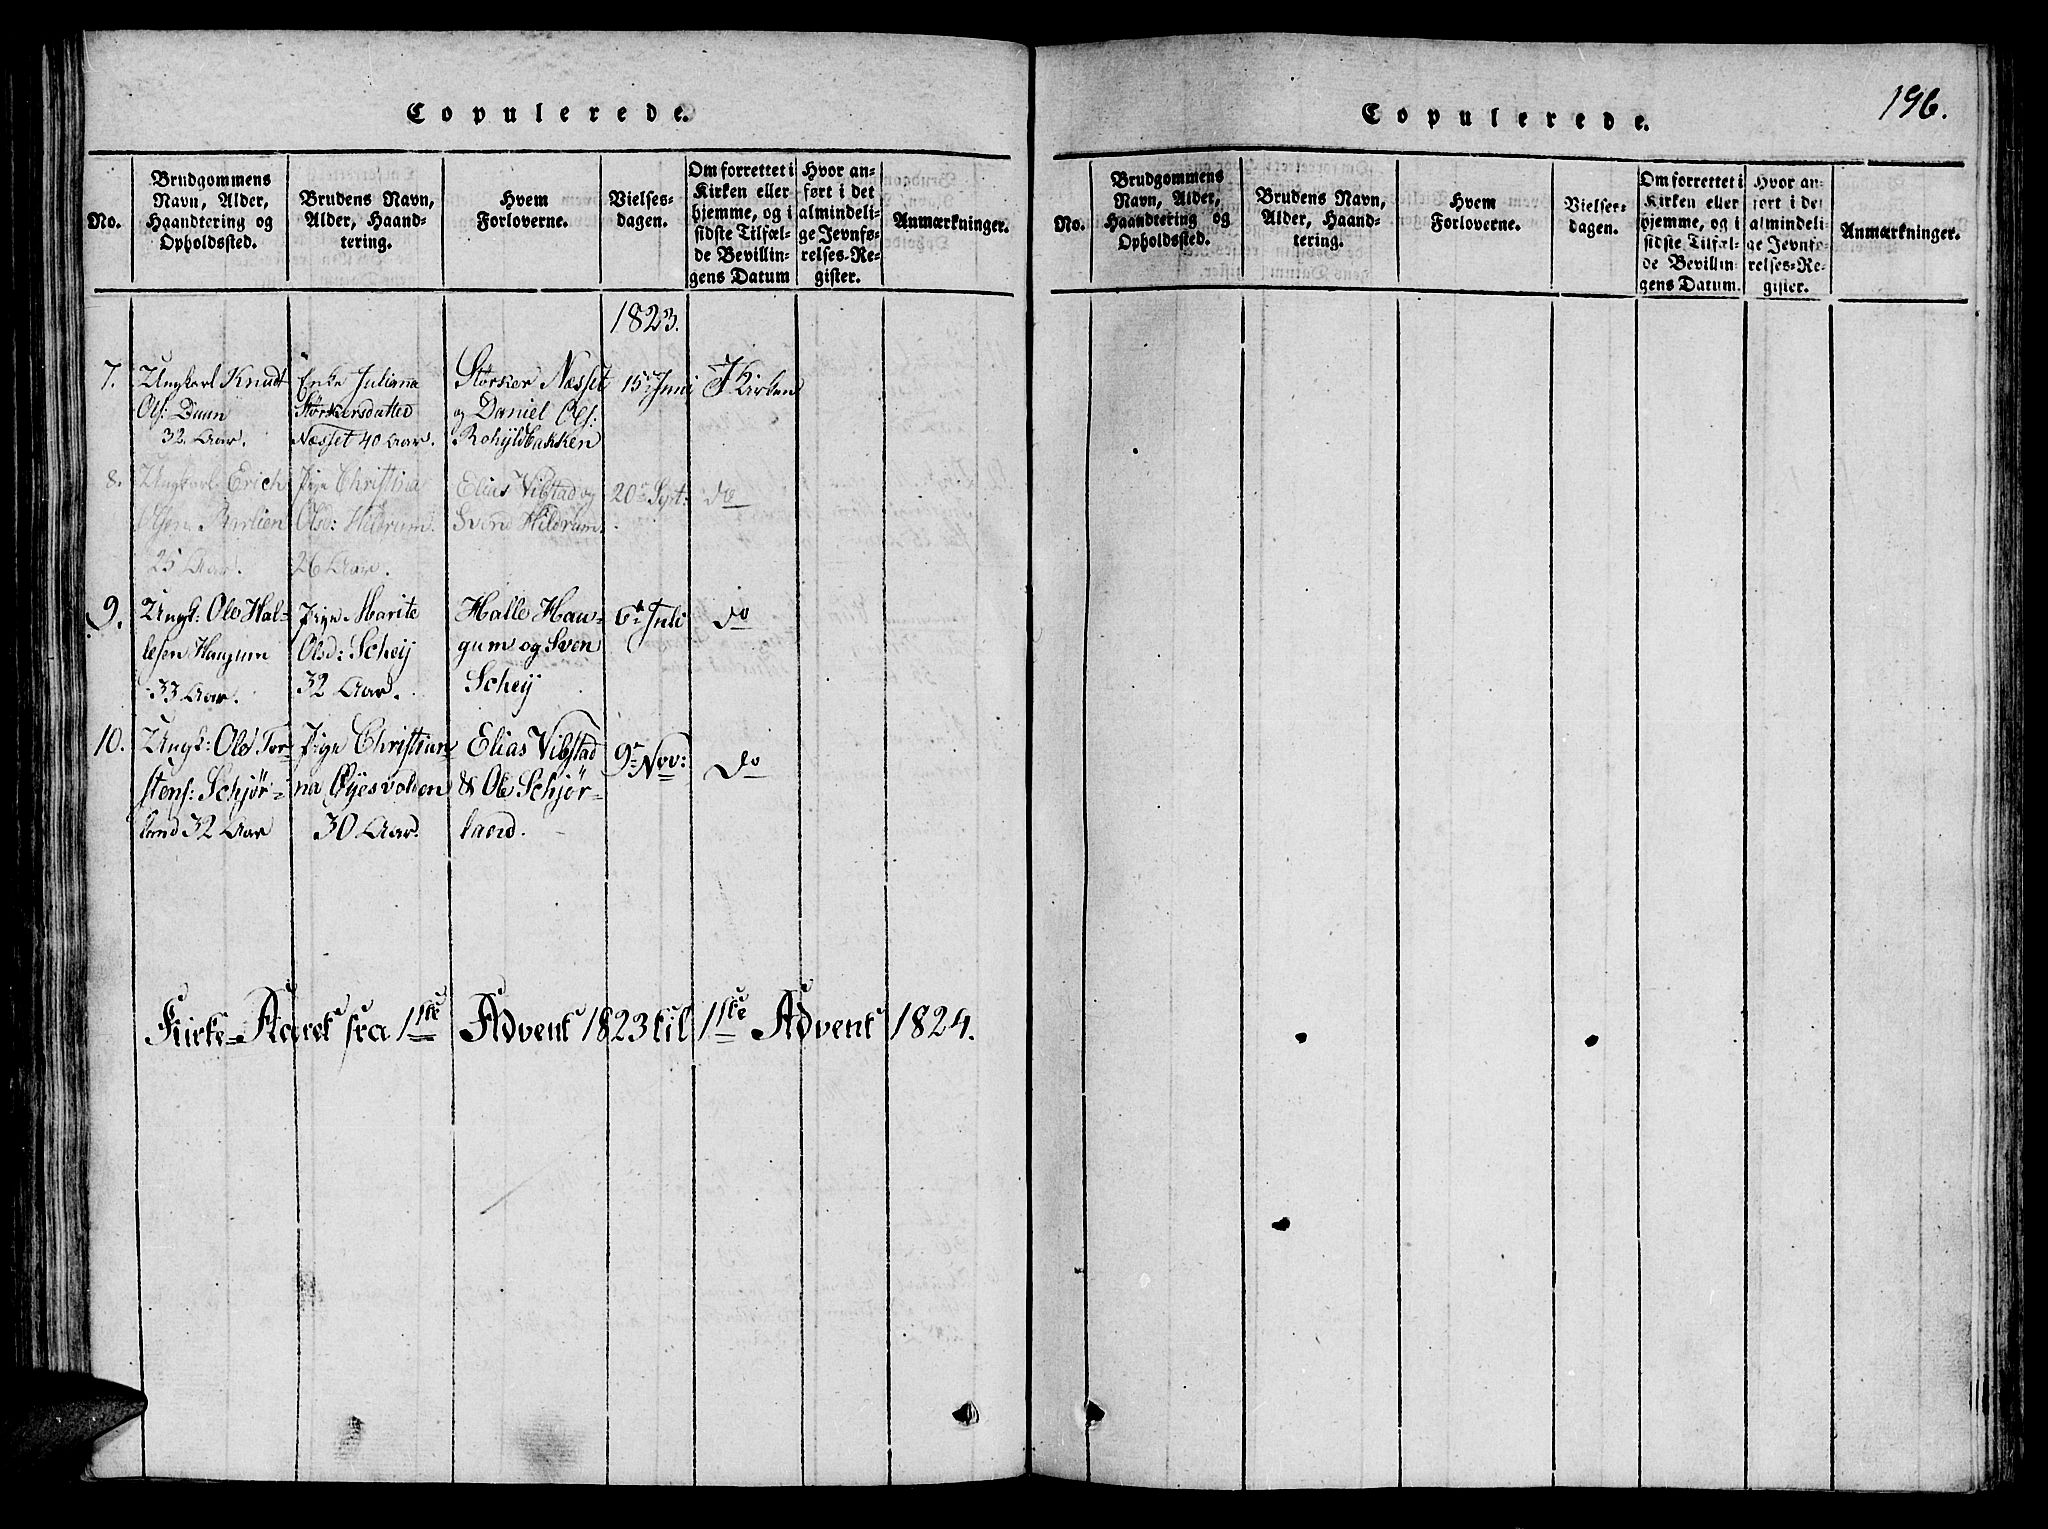 Copulerede.
No.
Brudgommens
Navn, Alder,
Haandtering og
Opholdssted.
Brudens Navn,
Alder, Haand-
tering.
Hvem
Forloverne.
Vielses-
dagen.
Om forrettet i
Kirken eller
hjemme, og i
sidste Tilfæl-
de Bevillin-
gens Datum
Hvor an-
ført i det
almindeli-
ge Jevnfø-
relses-Re-
gister.
Anmærkninger.
1823.
7.
Ungkarl Knudt
Ols: Duun
32 Aar.
Enke Juliana
Størkersdatter
Næsset 40 Aar.
Størker Næsset
og Daniel Ols:
15de Juni
I Kirken
8.
Ungkarl Erich
25 Aar.
Pige Christina
Olsd: Hildrum
26 Aar.
Elias Vibstad og
Svend Hildrum.
20de Sept:
do
9.
Ungk: Ole Hal-
lesen Haugum
33 Aar.
Pige Marite
Olsd: Scheij
32 Aar.
Halle Hau-
gum og Sven
Scheij
6te Juli
do
10.
Ungk: Ole Tor-
stens: Schjør-
land 32 Aar
Pige Christian-
na Øyesvolden
30 Aar.
Elias Vibstad
& Ole Schjør-
land.
9de Nov:
do
Kirke-Aaret fra 1ste Advent 1823 til 1ste Advent 1824.
Copulerede.
196.
No.
Brudgommens
Navn, Alder,
Haandtering og
Opholdssted.
Brudens Navn,
Alder, Haand-
tering.
Hvem
Forloverne.
Vielses-
dagen.
Om forrettet i
Kirken eller
hjemme, og i
sidste Tilfæl-
de Bevillin-
gens Datum.
Hvor an-
ført i det
almindeli-
ge Jevnfø-
relses-Re-
gister.
Anmærkninger.